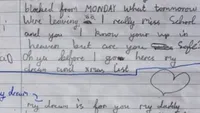 blocked from MONDAY what tommorow
Were leaving I really miss School
and you I know your up in
heaven but are you Safe
Oh ya before go heres my
dream and xmas list
my dream
my dream is for you my daddy